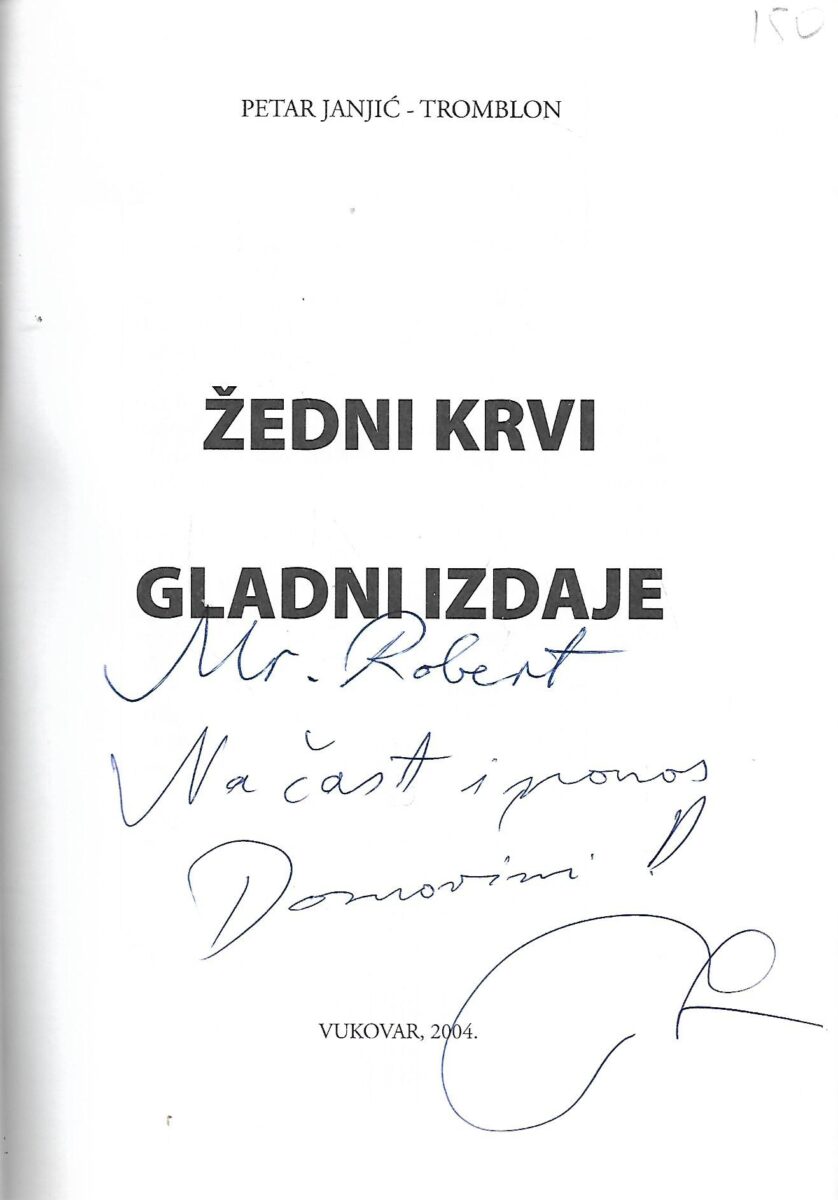 150
PETAR JANJIĆ - TROMBLON
ŽEDNI KRVI
GLADNI IZDAJE
Mr. Robert
Na čast i ponos
Domovini !
VUKOVAR, 2004.